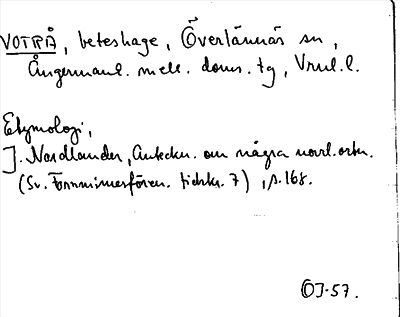 VOTRÅ, beteshage, Överlännäs sn,
Ångermanl. mell. doms. tg, Vnrl. l.
Etymologi,
J. Nordlander, Anteckn. om några norrl. ortn.
(Sv. Fornminnesfören. tidskr. 7), s. 168.
OJ-57.